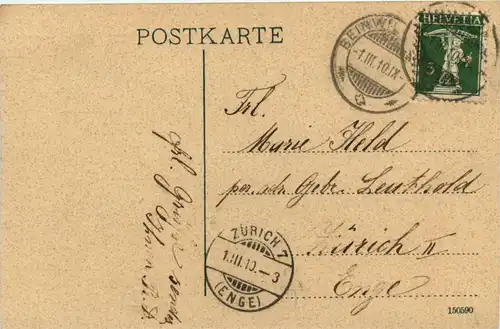 POSTKARTE
HELVETIA
BEINWIL
-1.III.10.IX-
Frl.
Marie Held
per. adr. Gebr. Leuthold
Zürich II
Enge
ZÜRICH 7
1.III.10.-3
(ENGE)
150590